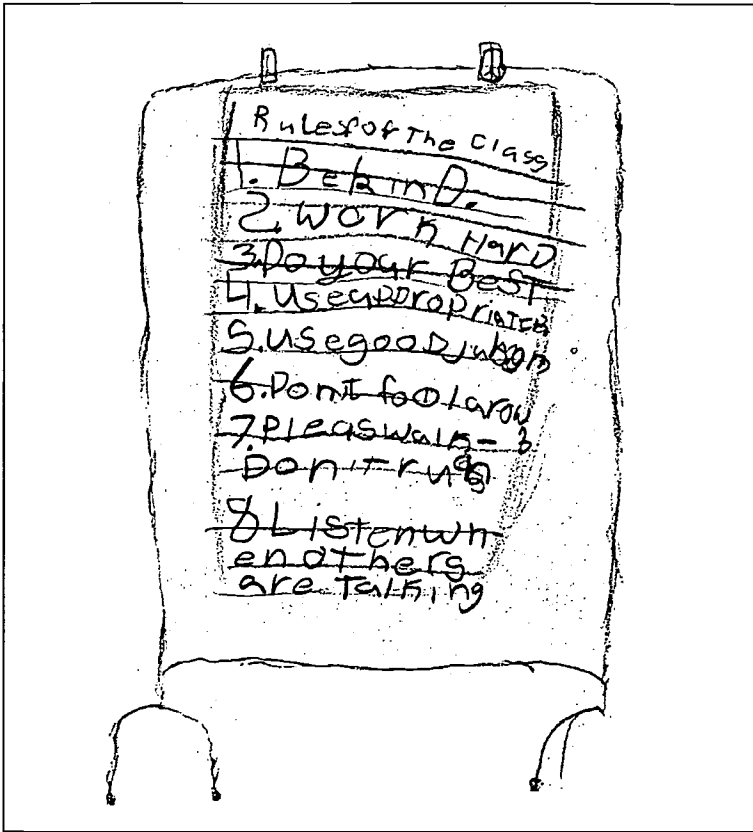 Rules of The Class
1. Be kinD.
2. Work HarD
3. Do your BesT
4. Use appropriate
5. Use gooD
6. Don't fool arow
7. Pleas Walk -
Don't run
8 Listen wh
en oThers
are Talking